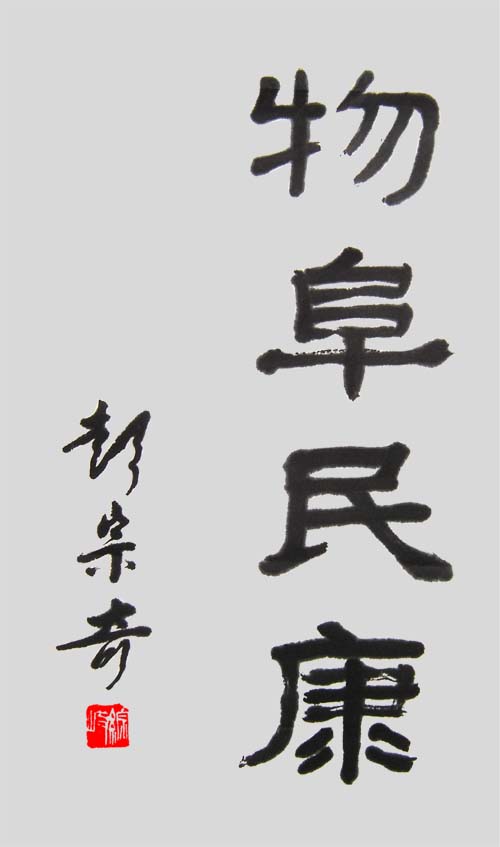 物阜民康
彭宗奇